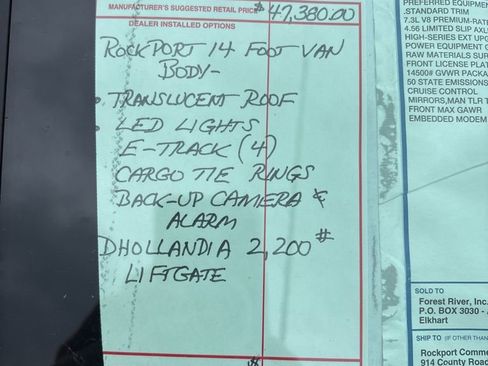 MANUFACTURER'S SUGGESTED RETAIL PRICE $ 47,380.00
DEALER INSTALLED OPTIONS
ROCKPORT 14 FOOT VAN
BODY-
• TRANSLUCENT ROOF
• LED LIGHTS
E-TRACK (4)
CARGO TIE RINGS
BACK-UP CAMERA &
ALARM
DHOLLANDIA 2,200#
LIFTGATE
$
PREFERRED EQUIPMEN
.STANDARD TRIM
7.3L V8 PREMIUM-RATE
4.56 LIMITED SLIP AXL
HIGH-SERIES EXT UPG
POWER EQUIPMENT G
RAW MATERIALS SUR
FRONT LICENSE PLAT
14500# GVWR PACKAG
50 STATE EMISSIONS
CRUISE CONTROL
MIRRORS,MAN TLR T
FRONT MAX GAWR
EMBEDDED MODEM
SOLD TO
Forest River, Inc.
P.O. BOX 3030 -
Elkhart
SHIP TO (IF OTHER THAN
Rockport Comme
914 County Road